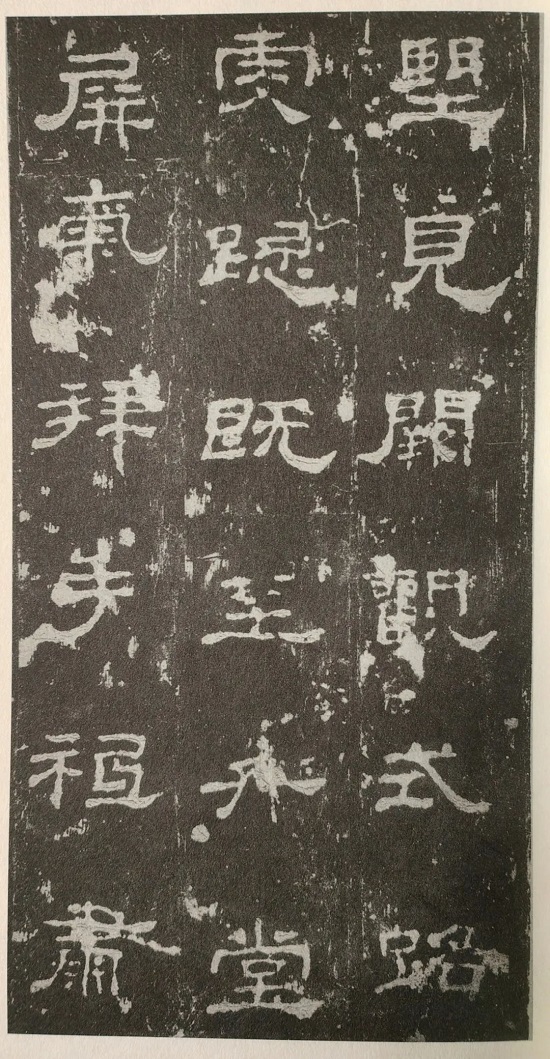 望見闕觀式路
虔跽既至升堂
屏氣拜手祗肅